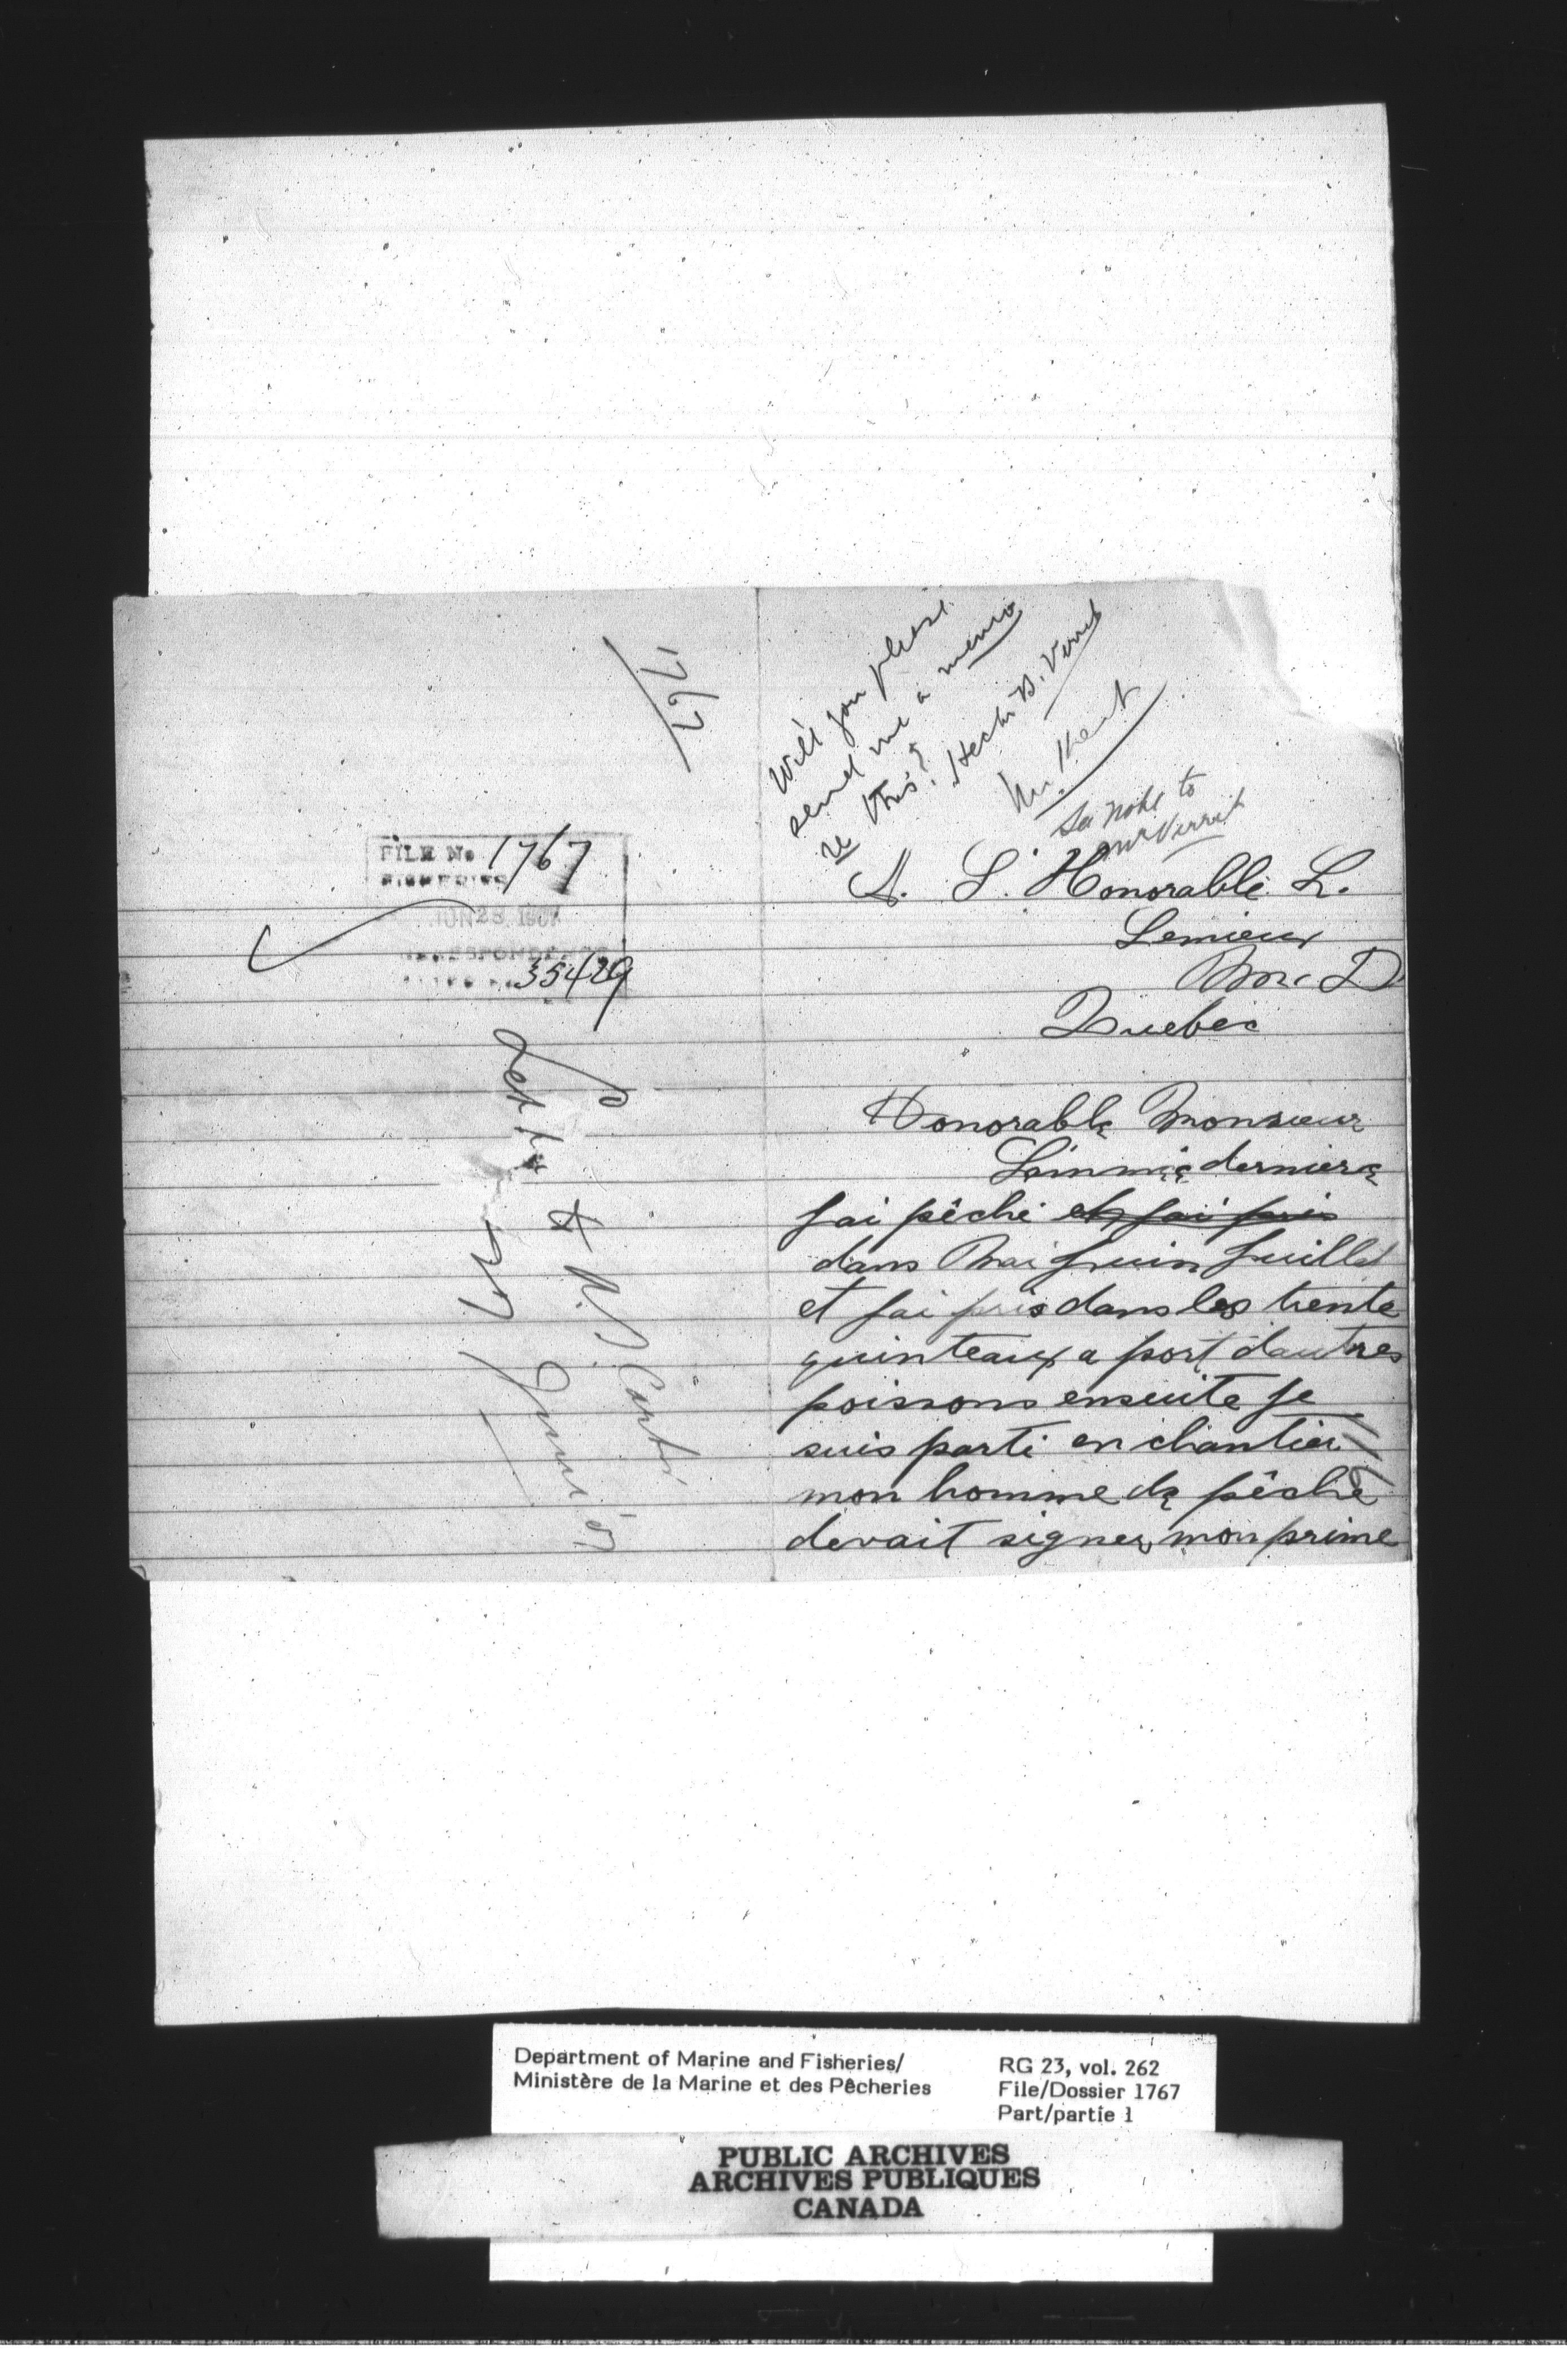 1767
FILE No 1767
FISHERIES
JUN 28 1907
CORRESPONDENCE
35429
Will you please
send me a memo
re this? Hector B. Verret
Mr. Kent
See note to
Mr Verret
A. L'Honorable L.
Lemieux
M. D
Quebec
Honorable Monsieur
L'anniee derniere
J'ai pêché et j'ai pris
dans Mai Juin Juillet
et Jai pris dans les trente
quinteaux a part dautres
poissons ensuite Je
suis parti en chantier
mon homme de pêche
devait signer mon prime
Department of Marine and Fisheries/
Ministère de la Marine et des Pêcheries
RG 23, vol. 262
File/Dossier 1767
Part/partie 1
PUBLIC ARCHIVES
ARCHIVES PUBLIQUES
CANADA